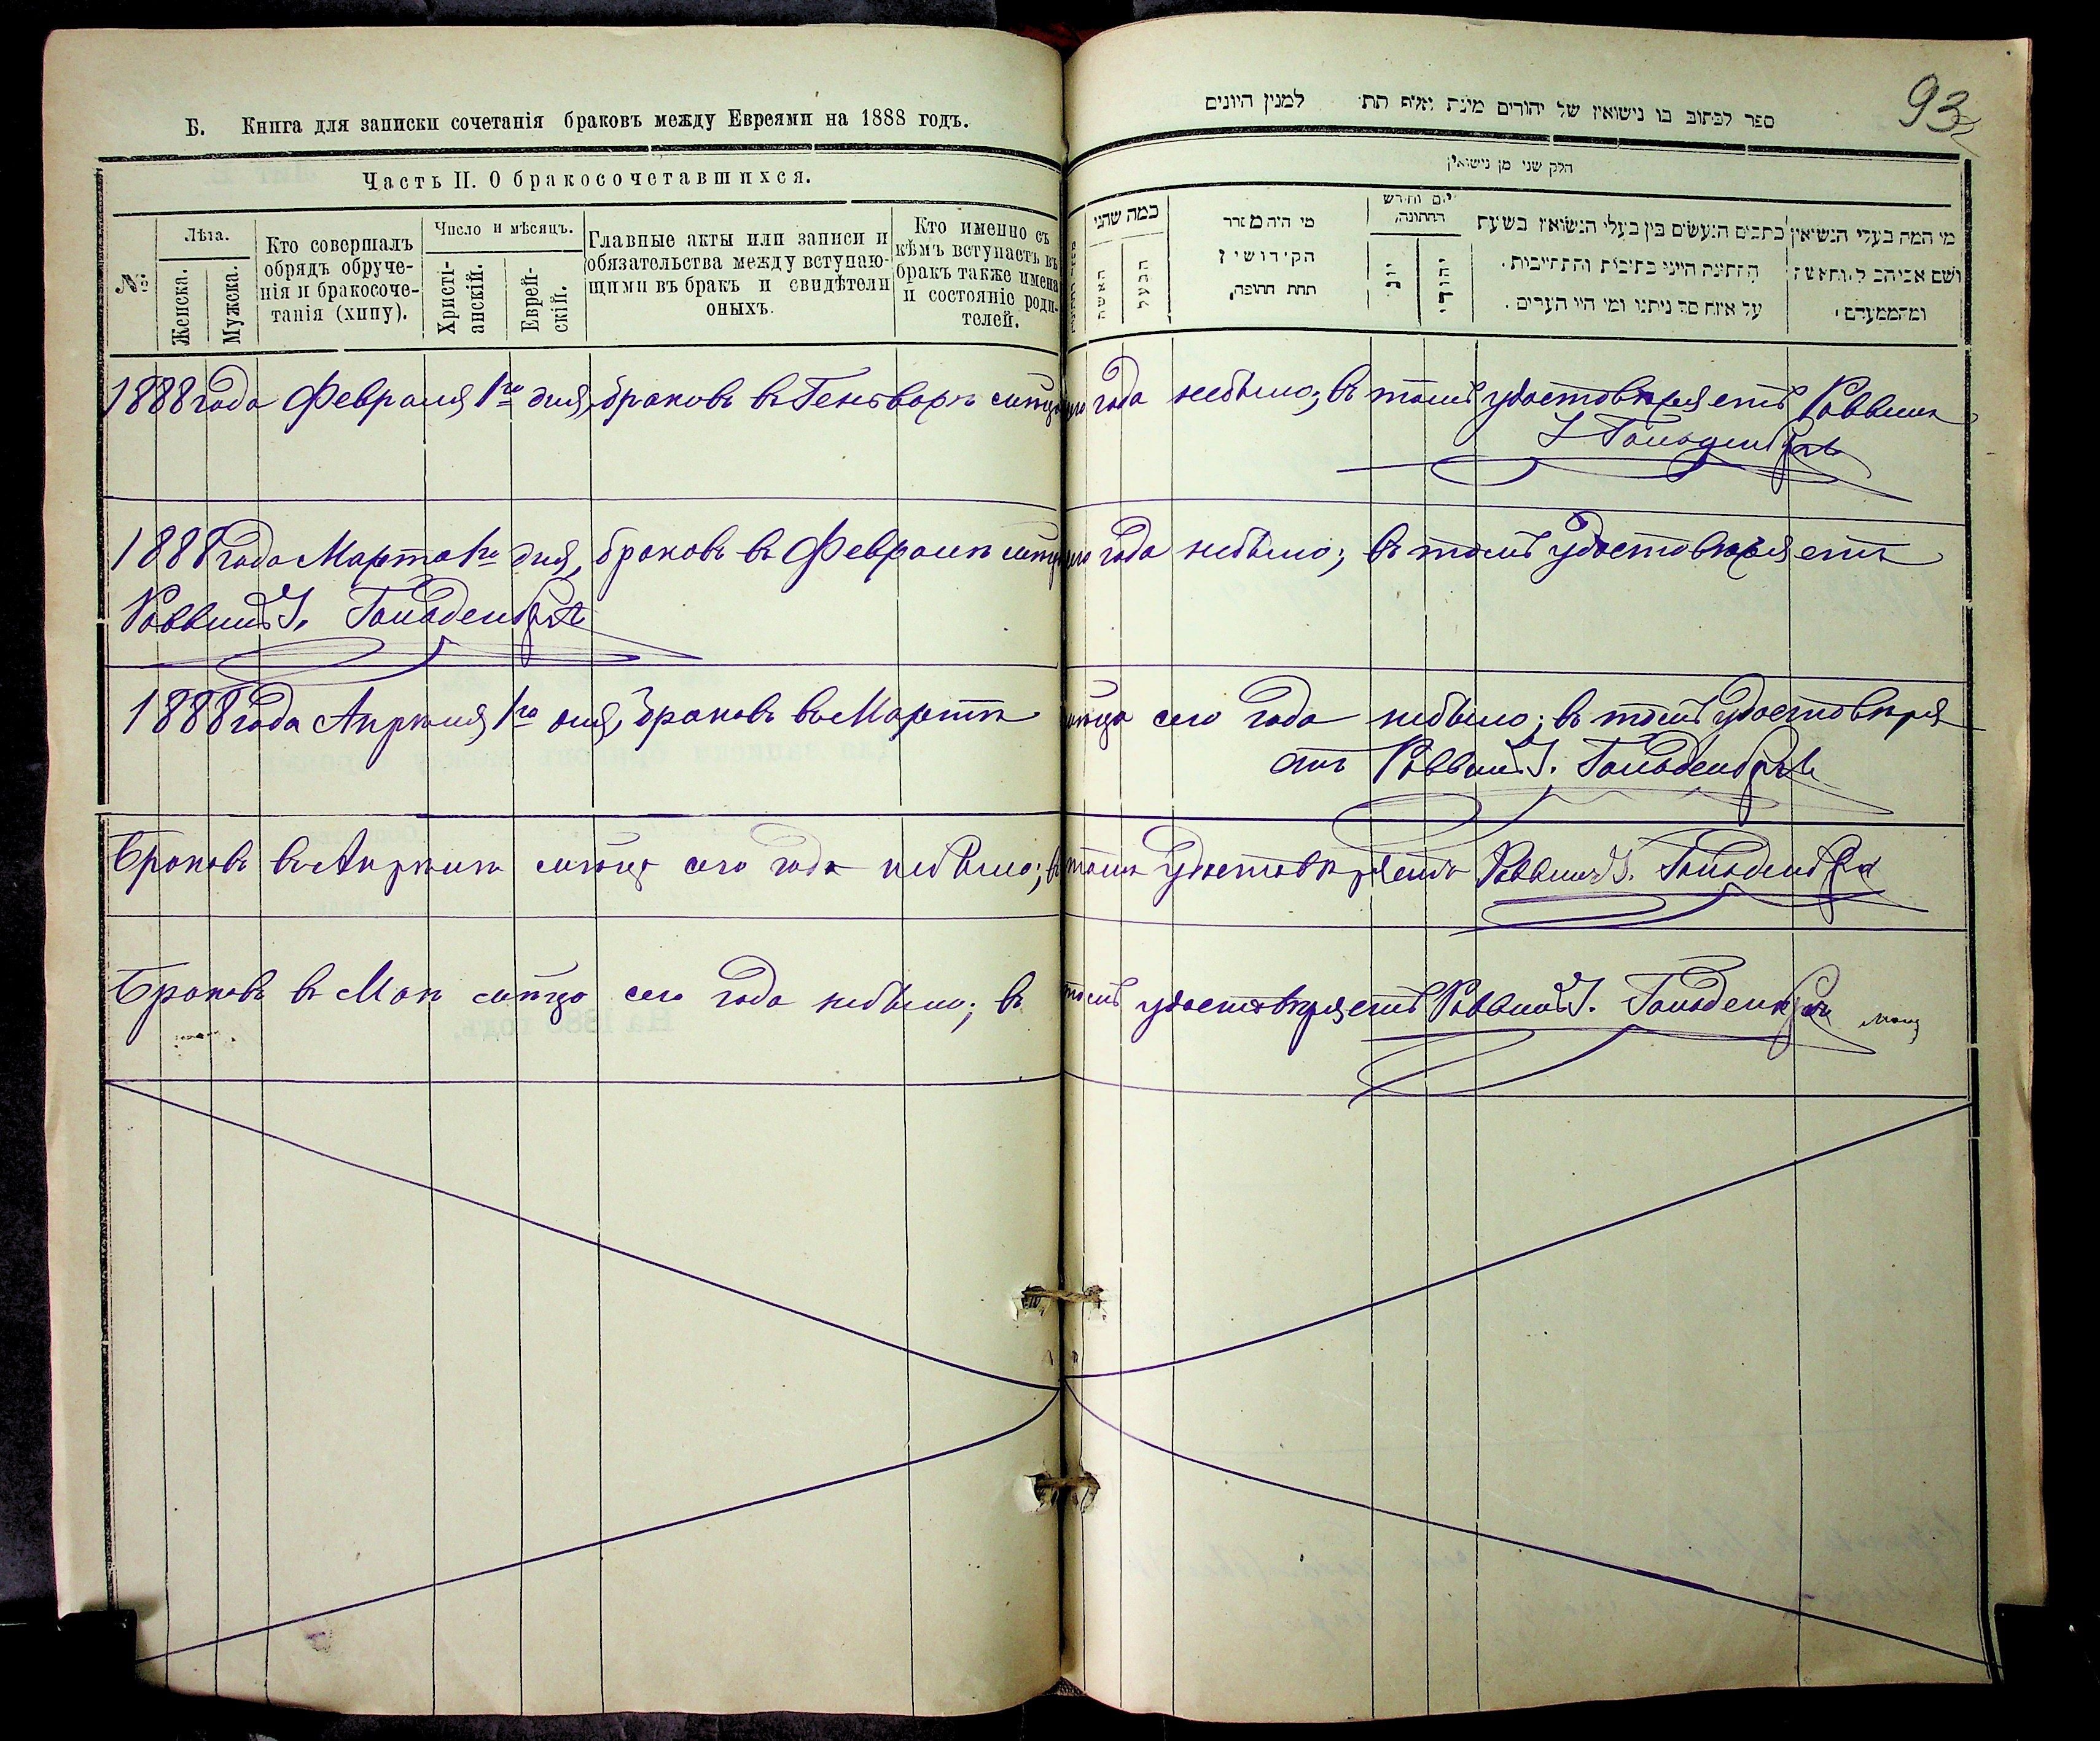 Б. Книга для записки сочетанія браковъ между Евреями на 1888 годъ.
Часть II. О бракосочетавшихся.
№
Лѣта.
Женска.
Мужска.
Кто совершалъ
обрядъ обруче-
нія и бракосоче-
танія (хипу).
Число и мѣсяцъ.
Христі-
анскій.
Еврей-
скій.
Главные акты или записи и
обязательства между вступаю-
щими въ бракъ и свидѣтели
оныхъ.
Кто именно съ
кѣмъ вступаетъ въ
бракъ также имена
и состояніе роди-
телей.
93
ספר לכתוב בו נישואין של יהודים משנת אלף תת למנין היונים
חלק שני מן נישואין
כמה שהני
האשה
הבעל
מי היה מסדר
הקידושין
תחת החופה,
יום וחודש
החתונה,
יוני
יהודי
כתבים הנעשים בין בעלי הנשואין בשעת
החתונה היינו כתיבות והתחייבות.
על איזה סך ניתנו ומי היו הערים.
מי המה בעלי הנשיאין
ושם אביהם
1888 года Февраля 1го дня, браковъ въ Генварѣ мѣсяцѣ сего года небыло; въ томъ удостовѣряетъ Раввинъ
І Гольденбергъ
1888 года Марта 1го дня, браковъ въ Февралѣ сего года небыло; въ томъ удостовѣряетъ
Раввинъ І. Гольденбергъ
1888 года Апрѣля 1го дня, браковъ въ Мартѣ мѣсяцѣ сего года небыло; въ томъ удостовѣря
етъ Раввинъ І. Гольденбергъ
Браковъ въ Апрѣлѣ мѣсяцѣ сего года небыло; въ томъ удостовѣряетъ Раввинъ І. Гольденбергъ
Браковъ въ Маѣ мѣсяцѣ сего года небыло; въ томъ удостовѣряетъ Раввинъ І. Гольденбергъ